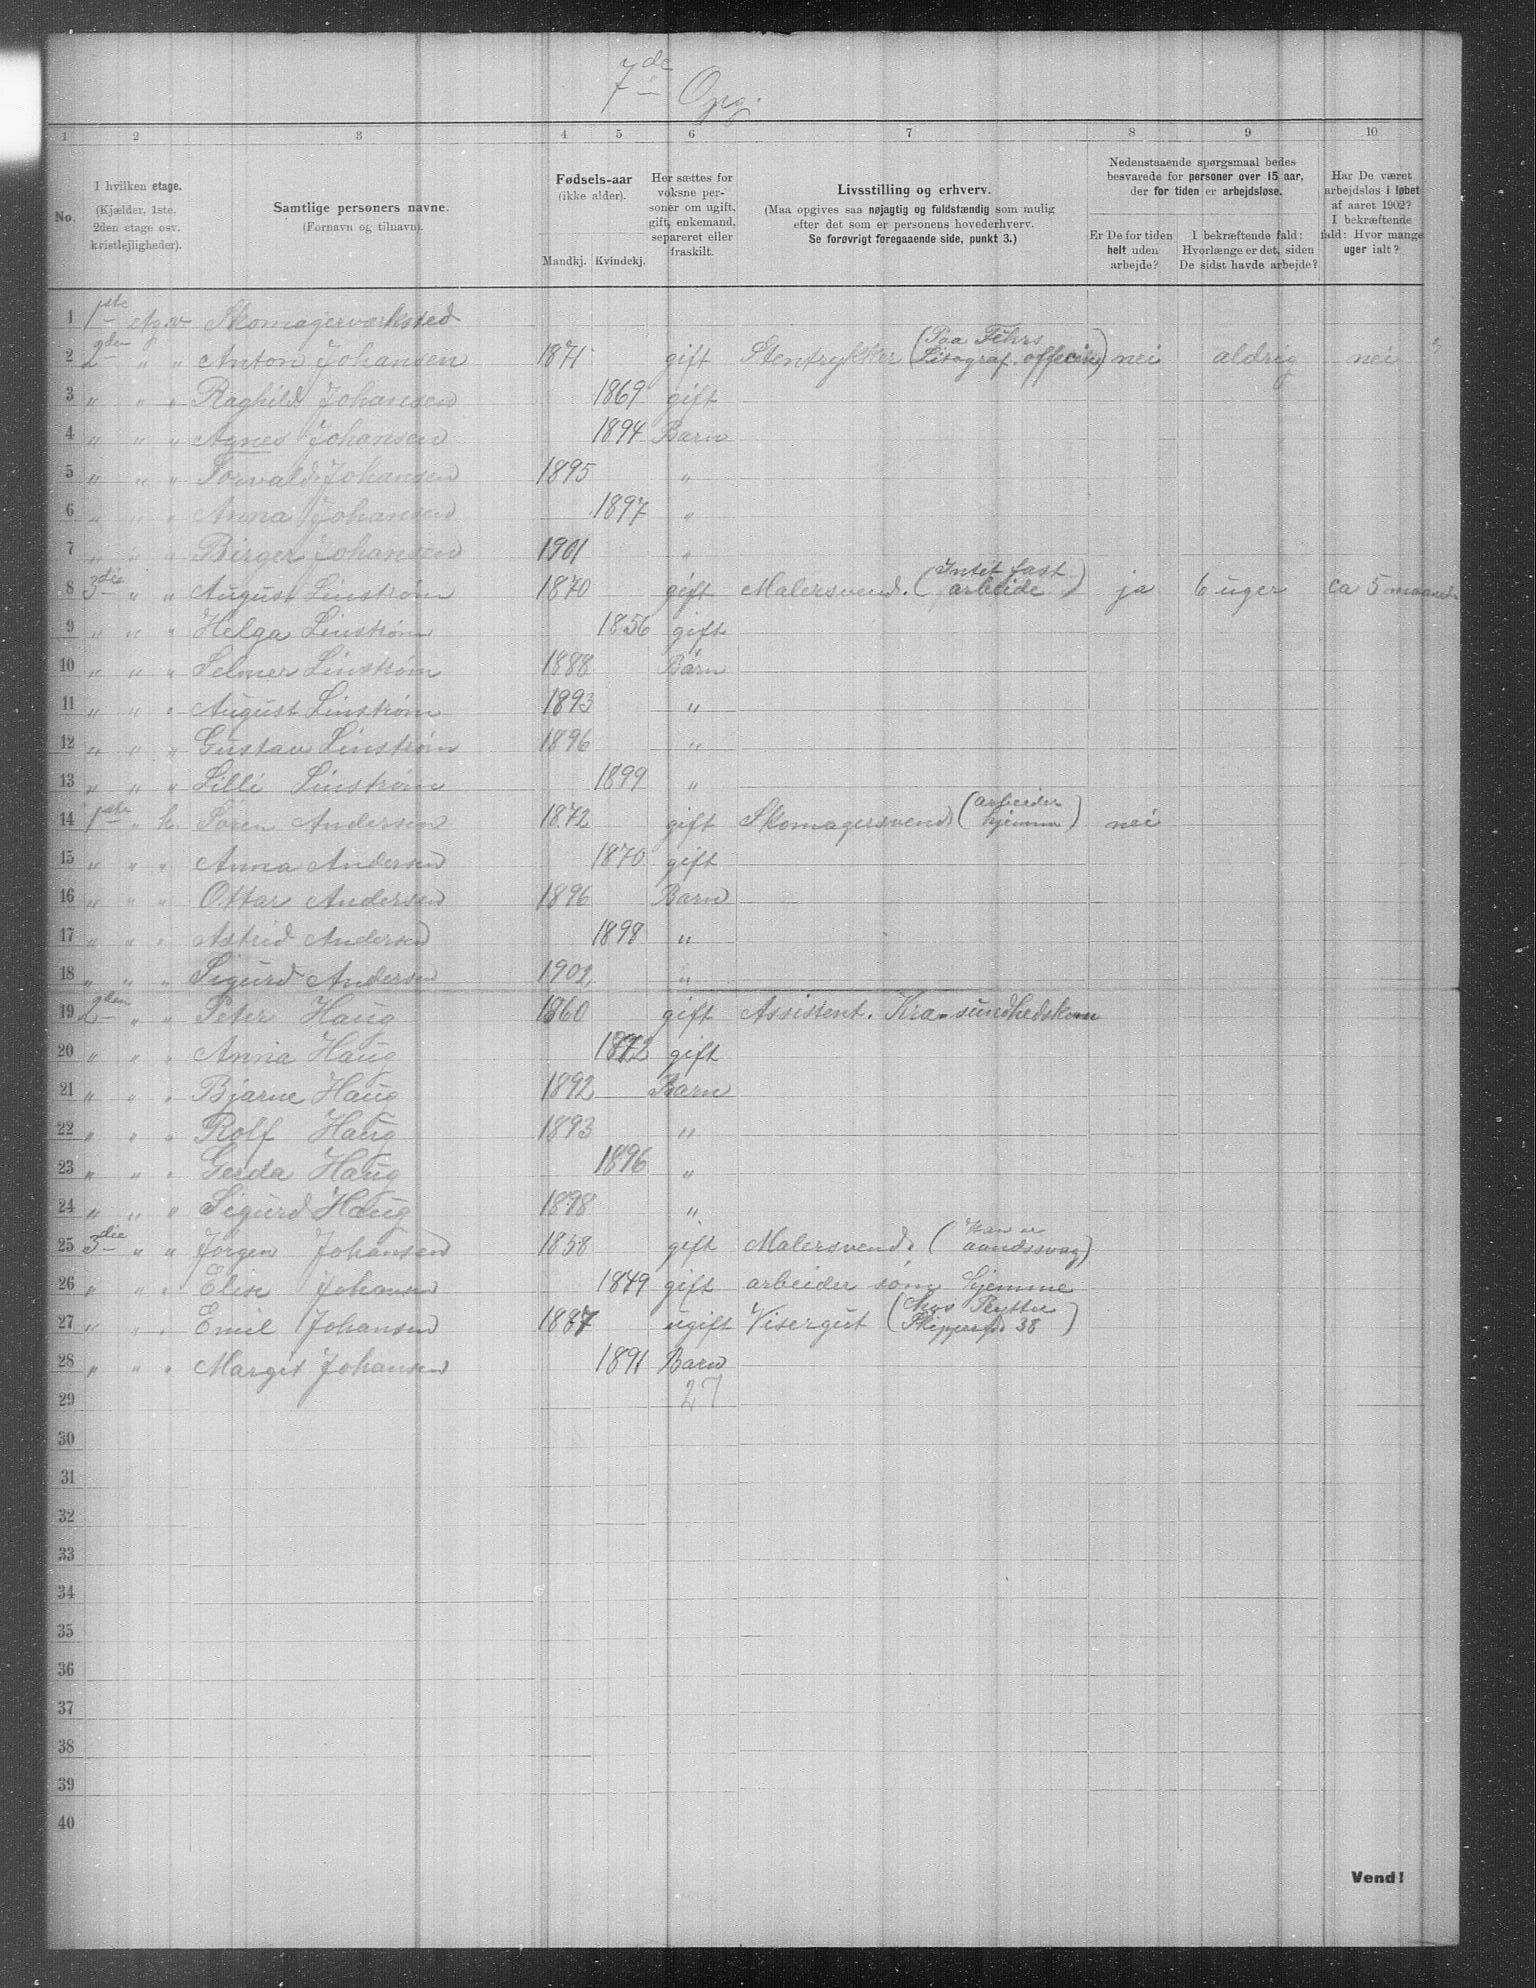 7de Opg.
1 2 3 4 5 6 7 8 9 10
No.
I hvilken etage.
(Kjælder, 1ste.
2den etage osv.
kvistlejligheder).
Samtlige personers navne.
(Fornavn og tilnavn).
Fødsels-aar
(ikke alder).
Mandkj. Kvindekj.
Her sættes for
voksne per-
soner om ugift,
gift, enkemand,
separeret eller
fraskilt.
Livsstilling og erhverv.
(Maa opgives saa nøjagtig og fuldstændig som mulig
efter det som er personens hovederhverv.
Se forøvrigt foregaaende side, punkt 3.)
Nedenstaaende spørgsmaal bedes
besvarede for personer over 15 aar,
der for tiden er arbejdsløse.
Er De for tiden
helt uden
arbejde?
I bekræftende fald:
Hvorlænge er det, siden
De sidst havde arbejde?
Har De været
arbejdsløs i løbet
af aaret 1902?
I bekræftende
fald: Hvor mange
uger ialt?
1 1ste etg. v Skomagerværksted
2 2den " " Anton Johansen 1871 gift Stentrykker (Paa Fehrs Litograf. officin) nei aldrig nei
3 " " " Raghild Johansen 1869 gift
4 " " " Agnes Johansen 1894 Barn
5 " " " Torvald Johansen 1895 "
6 " " " Anna Johansen 1897 "
7 " " " Birger Johansen 1901 "
8 3die " " August Linstrøm 1870 gift Malersvend. (Intet fast arbeide) ja 6 uger ca 5 maaneder
9 " " " Helga Linstrøm 1856 gift
10 " " " Selmer Linstrøm 1888 Barn
11 " " " August Linstrøm 1893 "
12 " " " Gustav Linstrøm 1896 "
13 " " " Lilli Linstrøm 1899 "
14 1ste " h Søren Andersen 1872 gift Skomagersvend (arbeider hjemme) nei
15 " " " Anna Andersen 1870 gift
16 " " " Ottar Andersen 1896 Barn
17 " " " Astrid Andersen 1898 "
18 " " " Sigurd Andersen 1901 "
19 2den " " Peter Haug 1860 gift Assistent. Kra. sundhedskom
20 " " " Anna Haug 1872 gift
21 " " " Bjarne Haug 1892 Barn
22 " " " Rolf Haug 1893 "
23 " " " Gerda Haug 1896 "
24 " " " Sigurd Haug 1898 "
25 3die " " Jørgen Johansen 1858 gift Malersvend. (Han er aandssvag)
26 " " " Elise Johansen 1849 gift arbeider søm hjemme
27 " " " Emil Johansen 1887 ugift Visergut (hos Rytter Skippergd 38)
28 " " " Margit Johansen 1891 Barn
29 27
30
31
32
33
34
35
36
37
38
39
40
Vend!